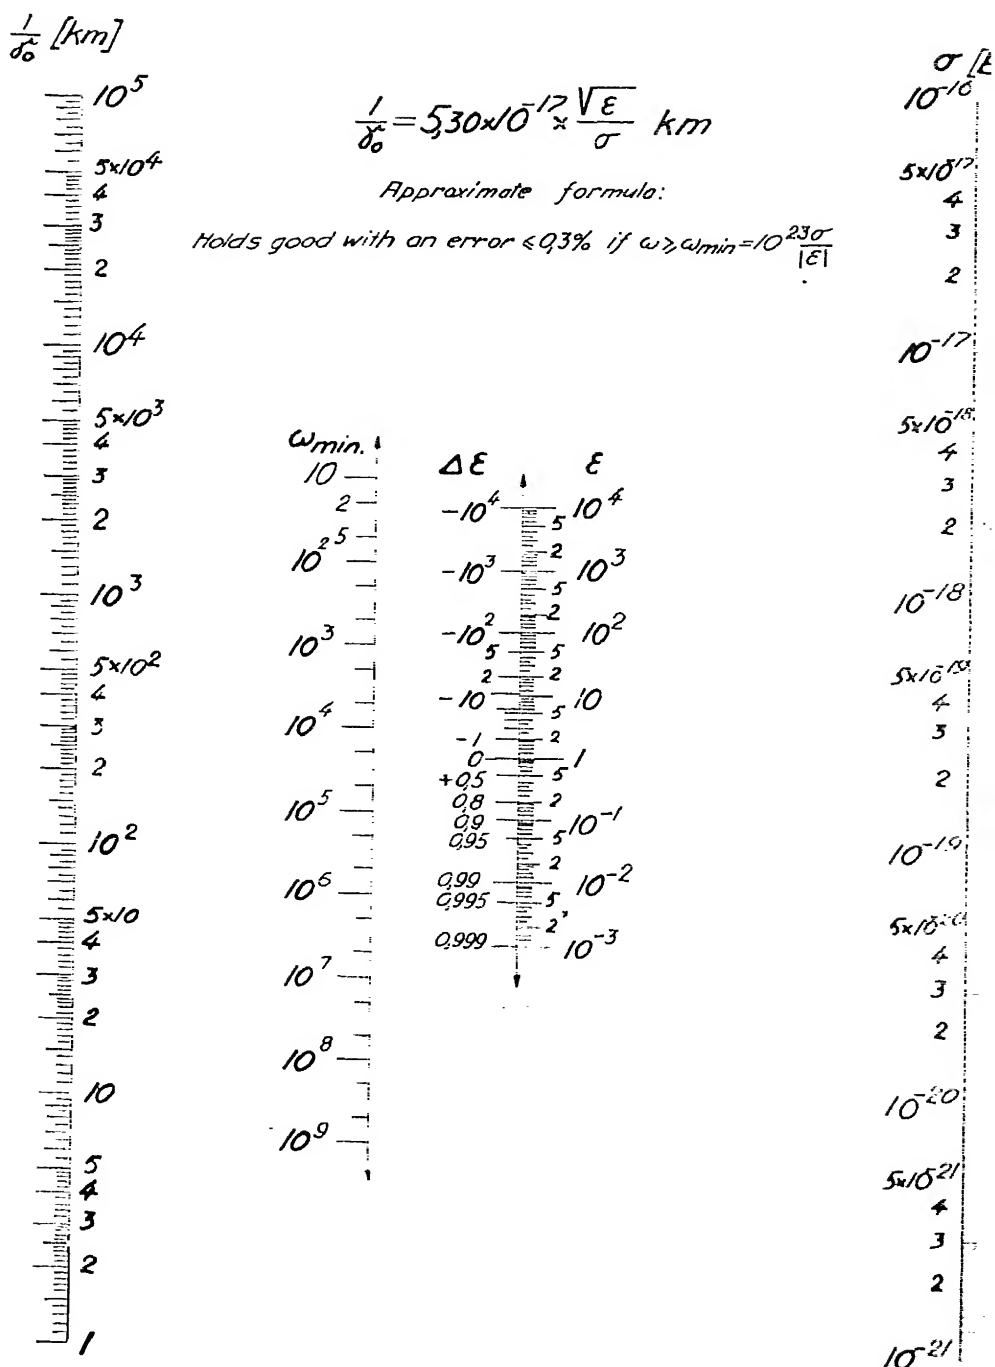 1/γ₀ [km]
10⁵
5×10⁴
4
3
2
10⁴
5×10³
4
3
2
10³
5×10²
4
3
2
10²
5×10
4
3
2
10
5
4
3
2
1
1/γ₀ = 5,30×10⁻¹⁷ × √ε/σ km
Approximate formula:
Holds good with an error ≤ 0,3% if ω ≥ ωmin = 10²³σ/|ε|
ωmin.
10
2
10² 5
10³
10⁴
10⁵
10⁶
10⁷
10⁸
10⁹
Δε
-10⁴
-10³
-10²
5
2
-10
-1
0
+0,5
0,8
0,9
0,95
0,99
0,995
0,999
ε
10⁴
5
2
10³
5
2
10²
5
2
10
5
2
1
5
2
10⁻¹
5
2
10⁻²
5
2
10⁻³
σ [E
10⁻¹⁶
5×10⁻¹⁷
4
3
2
10⁻¹⁷
5×10⁻¹⁸
4
3
2
10⁻¹⁸
5×10⁻¹⁹
4
3
2
10⁻¹⁹
5×10⁻²⁰
4
3
2
10⁻²⁰
5×10⁻²¹
4
3
2
10⁻²¹